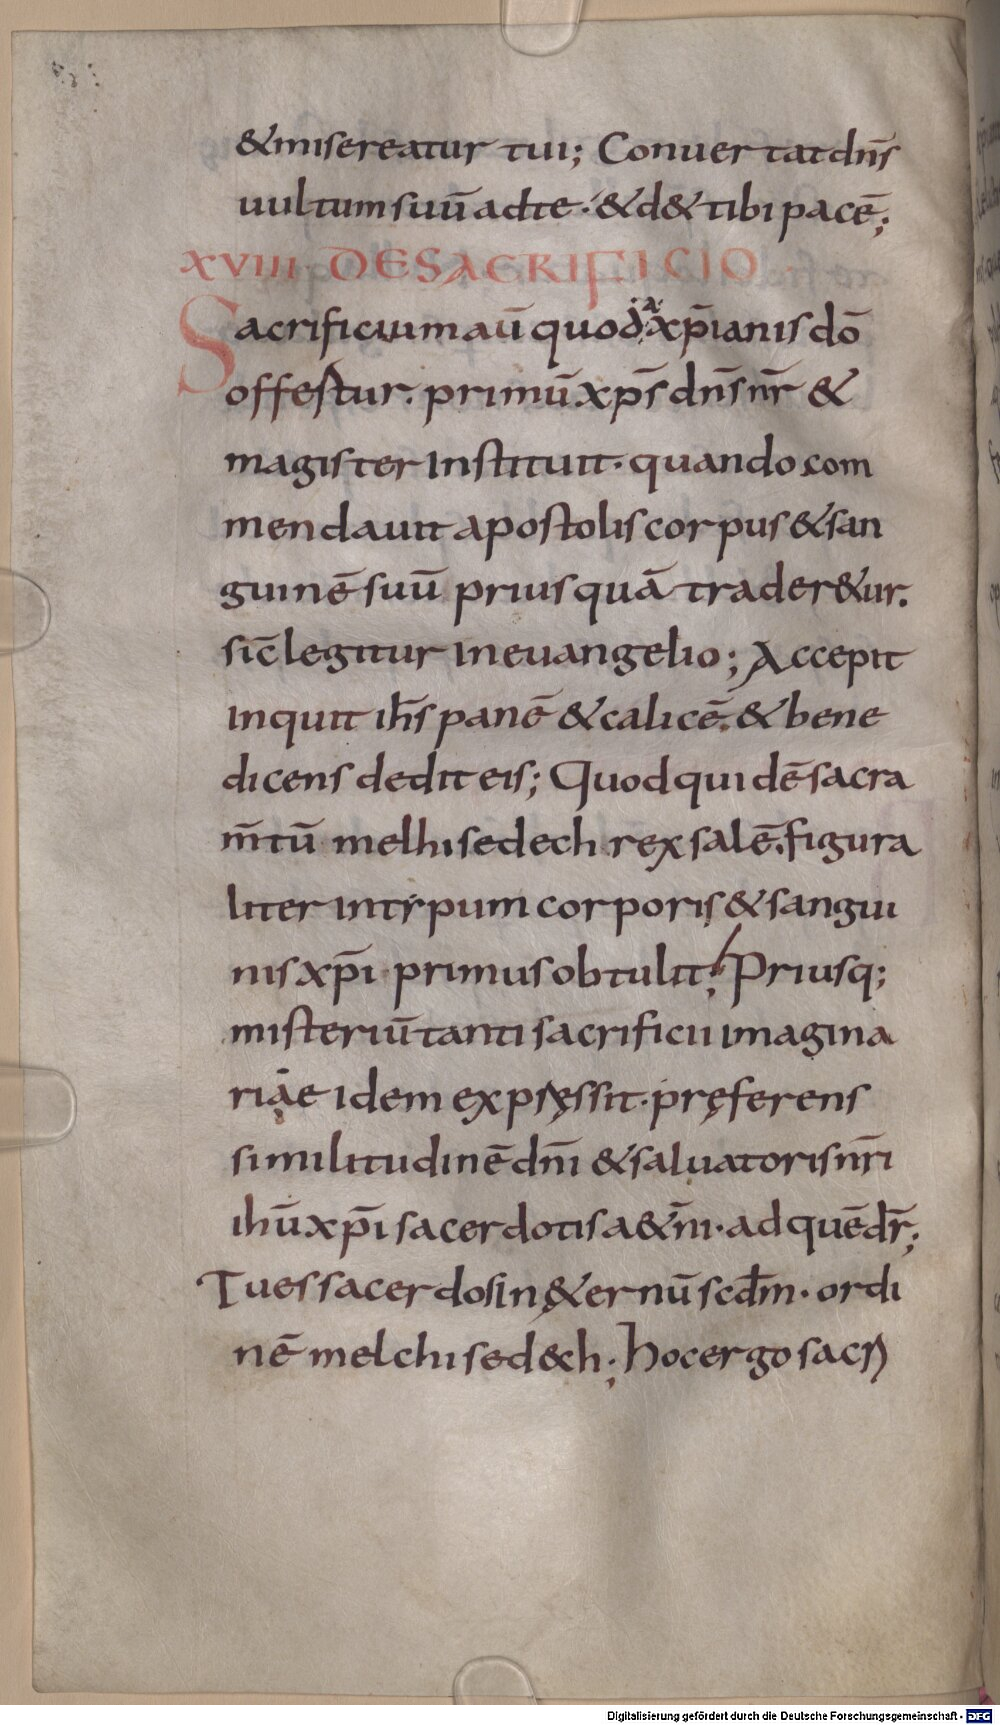 &misereatur tui; Conuertat dn̄s
uultum suū ad te· & d& tibi pacē;
XVIII· DE SACRIFICIO
Sacrificium aū quod a xp̄ianis dō
offertur. primū xp̄s dn̄s nr̄ &
magister instituit· quando com
mendauit apostolis corpus & san
guinē suū prius quā trader&ur.
sic̄ legitur in euangelio; Accepit
inquit ih̄s panē & calicē· & bene
dicens dedit eis; Quod quidē sacra
m̄tū melhisedech rex salē. figura
liter in typum corporis & sangui
nis xp̄i primus obtulit; Priusq;
misteriū tanti sacrificii imagina
riae idem expręssit· pręferens
similitudinē dn̄i & saluatoris nr̄i
ihū xp̄i sacerdotis a&n̄i· ad quē dr̄;
Tu es sacerdos in &ernū scd̄m· ordi
nē melchised&ch; hoc ergo sacri
Digitalisierung gefördert durch die Deutsche Forschungsgemeinschaft - DFG